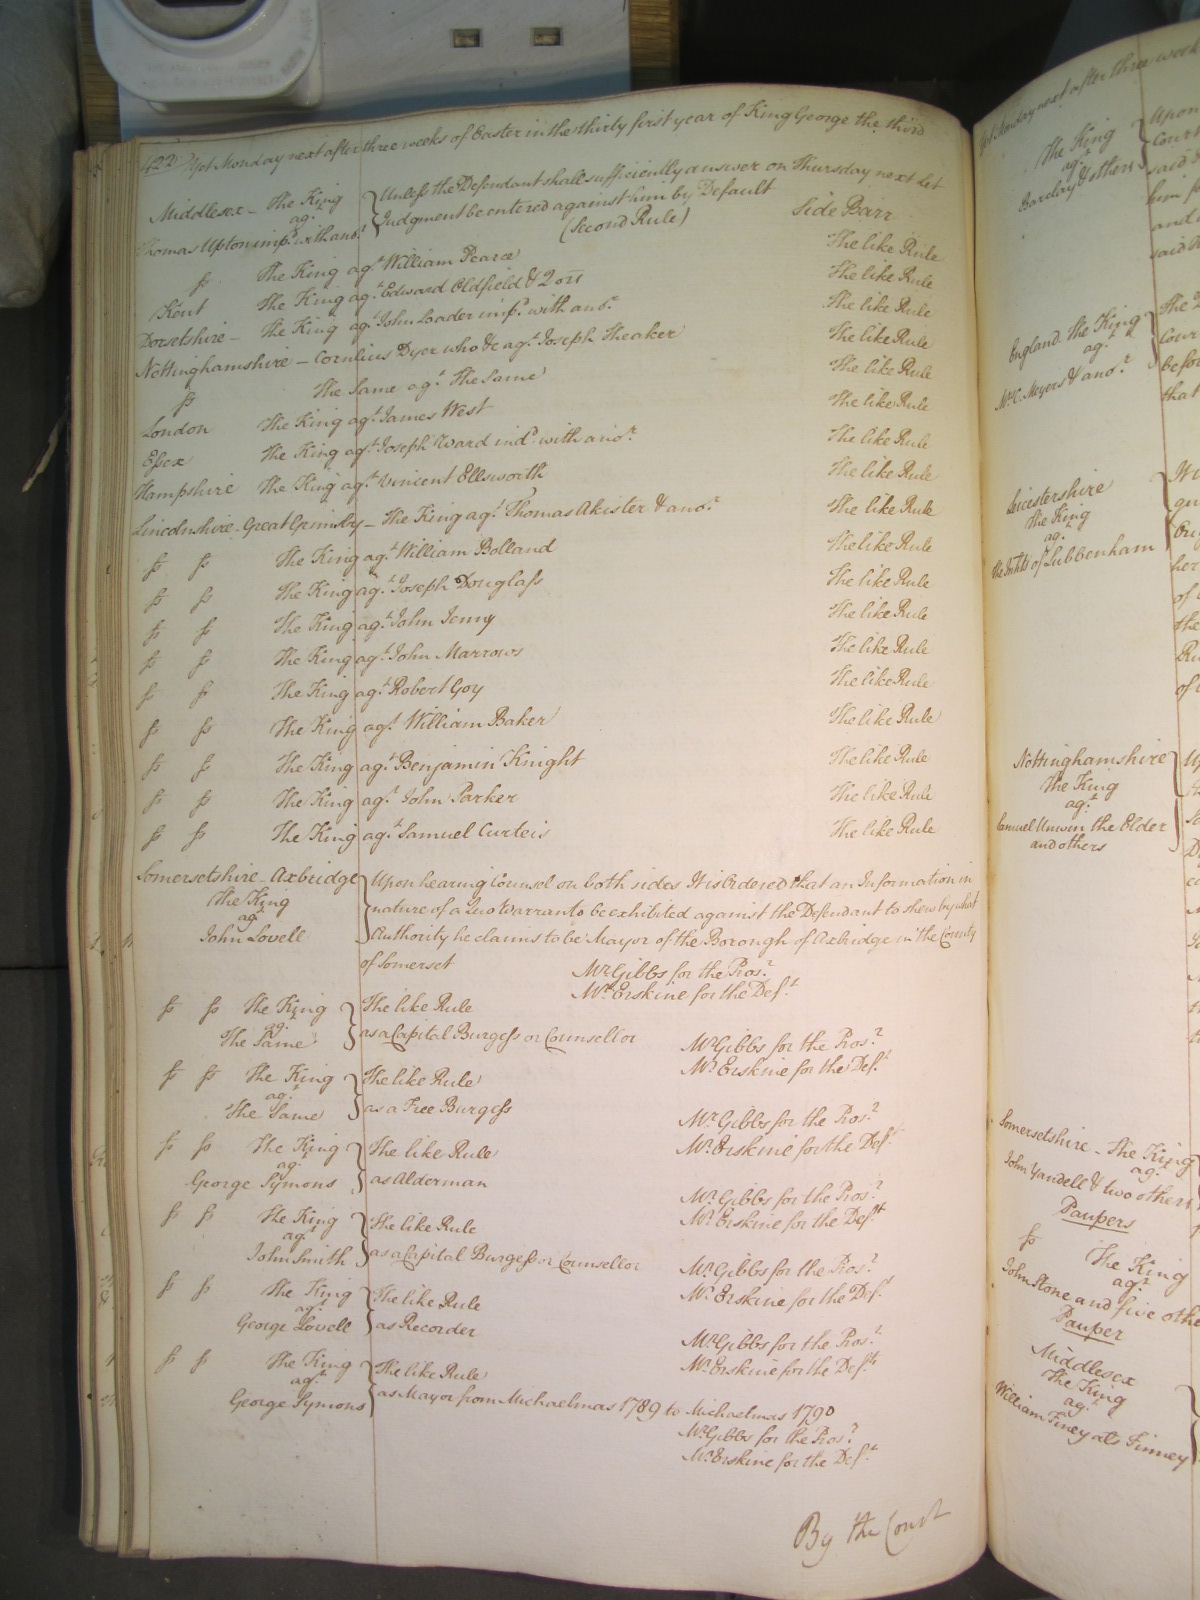 422 Yet Monday next after three weeks of Easter in the thirty first year of King George the third
Middlesex - The King
agt
Thomas Upton impd with anor
Unless the Defendant shall sufficiently answer on Thursday next let
Judgment be entered against him by Default
(Second Rule) Side Barr
ss The King agt William Pearce The like Rule
Kent The King agt Edward Oldfield & 2 ors The like Rule
Dorsetshire - The King agt John Loader impd with anor The like Rule
Nottinghamshire - Cornelius Dyer who &c agt Joseph Theaker The like Rule
ss The Same agt The Same The like Rule
London The King agt James West The like Rule
Essex The King agt Joseph Ward indd with anor The like Rule
Hampshire The King agt Vincent Ellsworth The like Rule
Lincolnshire - Great Grimsby - The King agt Thomas Akister & anor The like Rule
ss ss The King agt William Bolland The like Rule
ss ss The King agt Joseph Douglass The like Rule
ss ss The King agt John Jenny The like Rule
ss ss The King agt John Marrows The like Rule
ss ss The King agt Robert Goy The like Rule
ss ss The King agt William Baker The like Rule
ss ss The King agt Benjamin Knight The like Rule
ss ss The King agt John Parker The like Rule
ss ss The King agt Samuel Curteis The like Rule
Somersetshire - Axbridge
The King
agt
John Lovell
Upon hearing Counsel on both sides It is Ordered that an Information in
nature of a Quo Warranto be exhibited against the Defendant to shew by what
Authority he claims to be Mayor of the Borough of Axbridge in the County
of Somerset Mr Gibbs for the Prosr
Mr Erskine for the Deft
ss ss The King
agt
The Same
The like Rule
as a Capital Burgess or Counsellor Mr Gibbs for the Prosr
Mr Erskine for the Deft
ss ss The King
agt
The Same
The like Rule
as a Free Burgess Mr Gibbs for the Prosr
Mr Erskine for the Deft
ss ss The King
agt
George Symons
The like Rule
as Alderman Mr Gibbs for the Prosr
Mr Erskine for the Deft
ss ss The King
agt
John Smith
The like Rule
as a Capital Burgess or Counsellor Mr Gibbs for the Prosr
Mr Erskine for the Deft
ss ss The King
agt
George Lovell
The like Rule
as Recorder Mr Gibbs for the Prosr
Mr Erskine for the Deft
ss ss The King
agt
George Symons
The like Rule
as Mayor from Michaelmas 1789 to Michaelmas 1790
Mr Gibbs for the Prosr
Mr Erskine for the Deft
By the Court
Yet Monday next after three weeks
The King
agt
Barclay & others
Upon
Court
said
him
and
said
England The King
agt
Mr C. Meyers & anor
The
Cour
befor
that
Leicestershire
The King
agt
The Inhts of Lubbenham
her
of
the
Ru
of
Nottinghamshire
The King
agt
Samuel Unwin the Elder
and others
Up
Somersetshire - The King
agt
John Yandell & two others
Paupers
ss The King
agt
John Stone and five othe
Pauper
Middlesex
The King
agt
William Finey als Finney